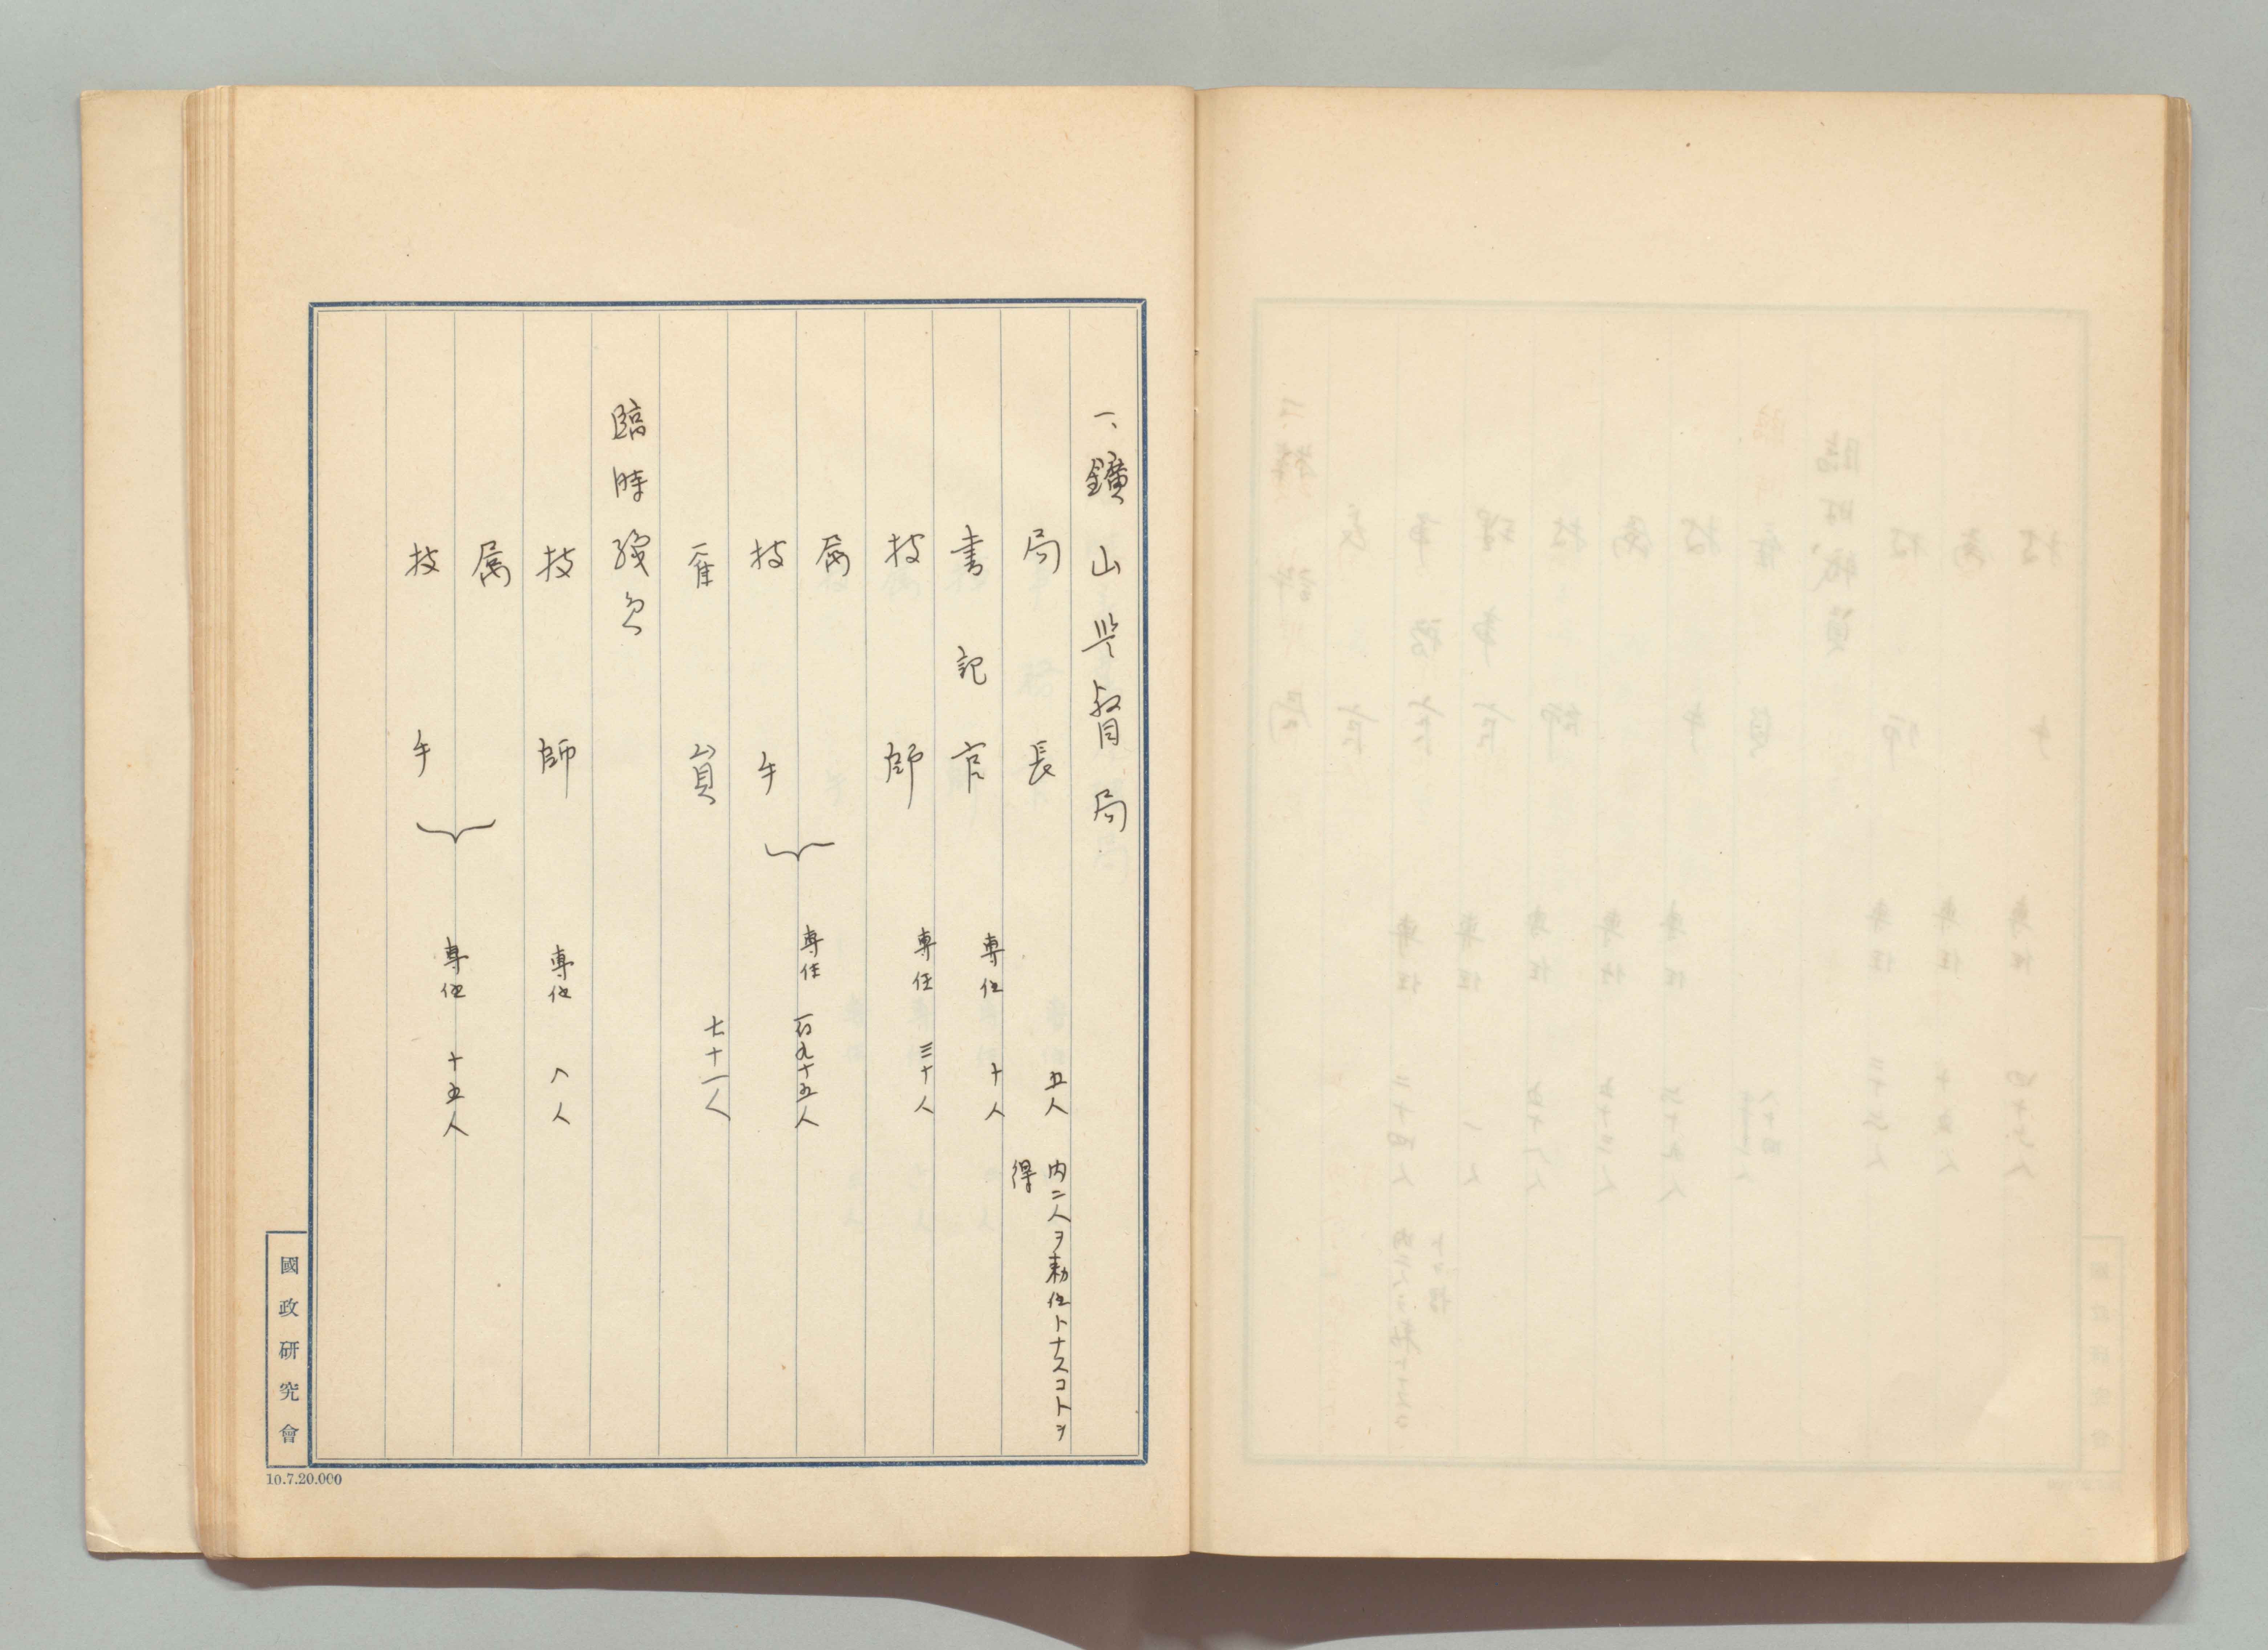 一、鑛山監督局
局長 五人 内二人ヲ勅任トナスコトヲ
得
書記官 専任 十人
技師 専任 三十人
属
技手 専任 百九十五人
雇員 七十一人
臨時職員
技師 専任 八人
属
技手 専任 十五人
國政研究會
10.7.20.000